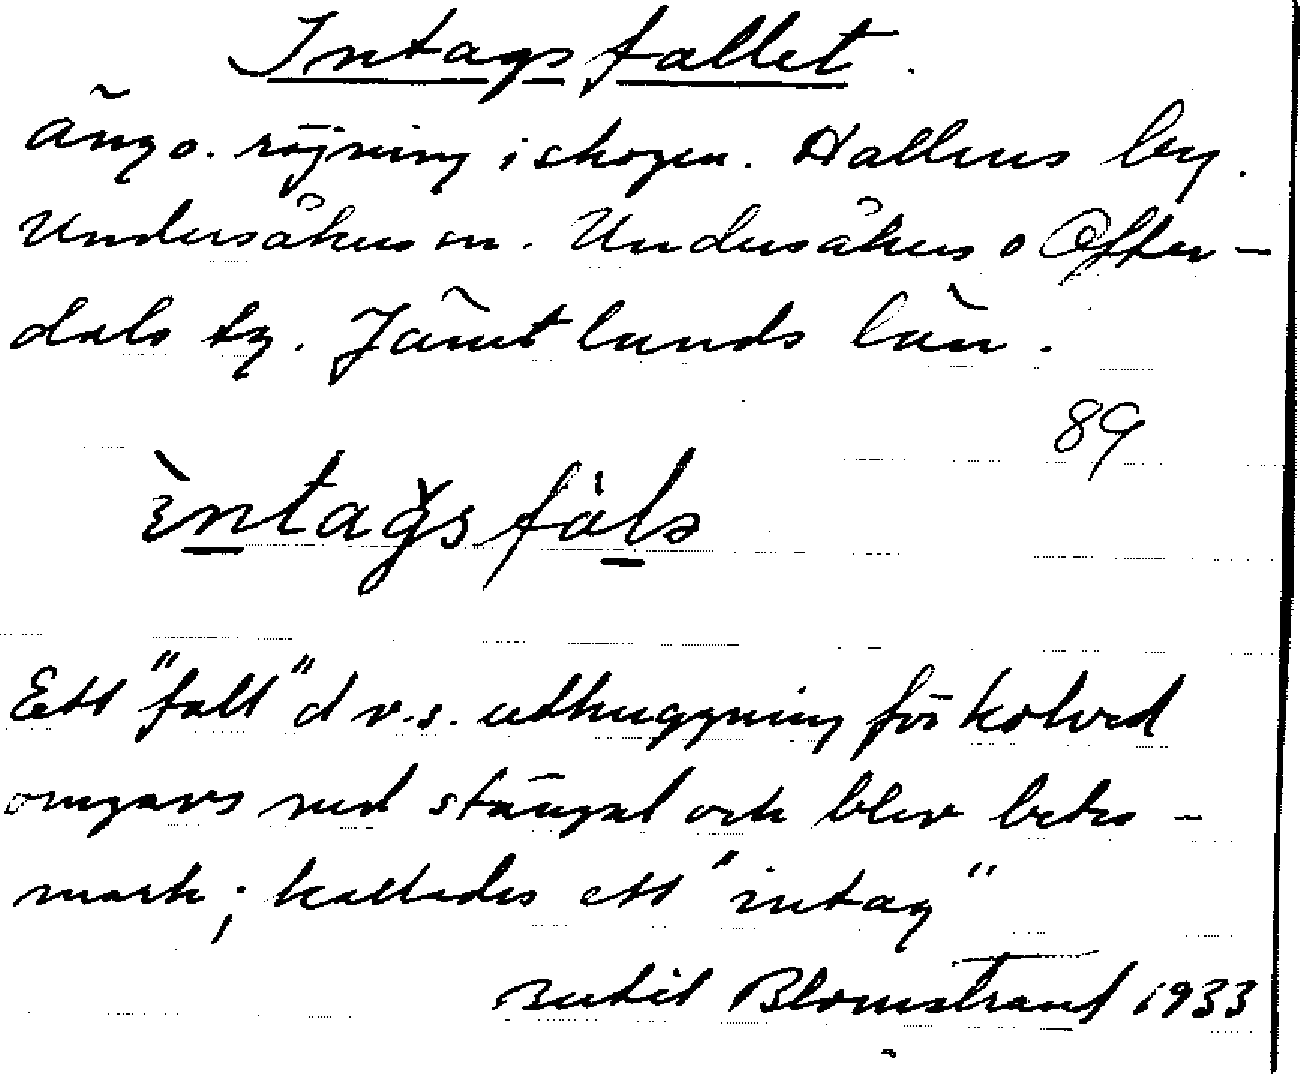 Intagsfallet.
Äng o. röjning i skogen. Hallens by.
Undersåkers sn. Undersåkers o Offer-
dals tg. Jämtlands län.
89
Ett "fall" d v.s. uthuggning för kolved
omgavs med stängsel och blev betes-
mark; kallades ett "intag"
Bertil Blomstrand 1933